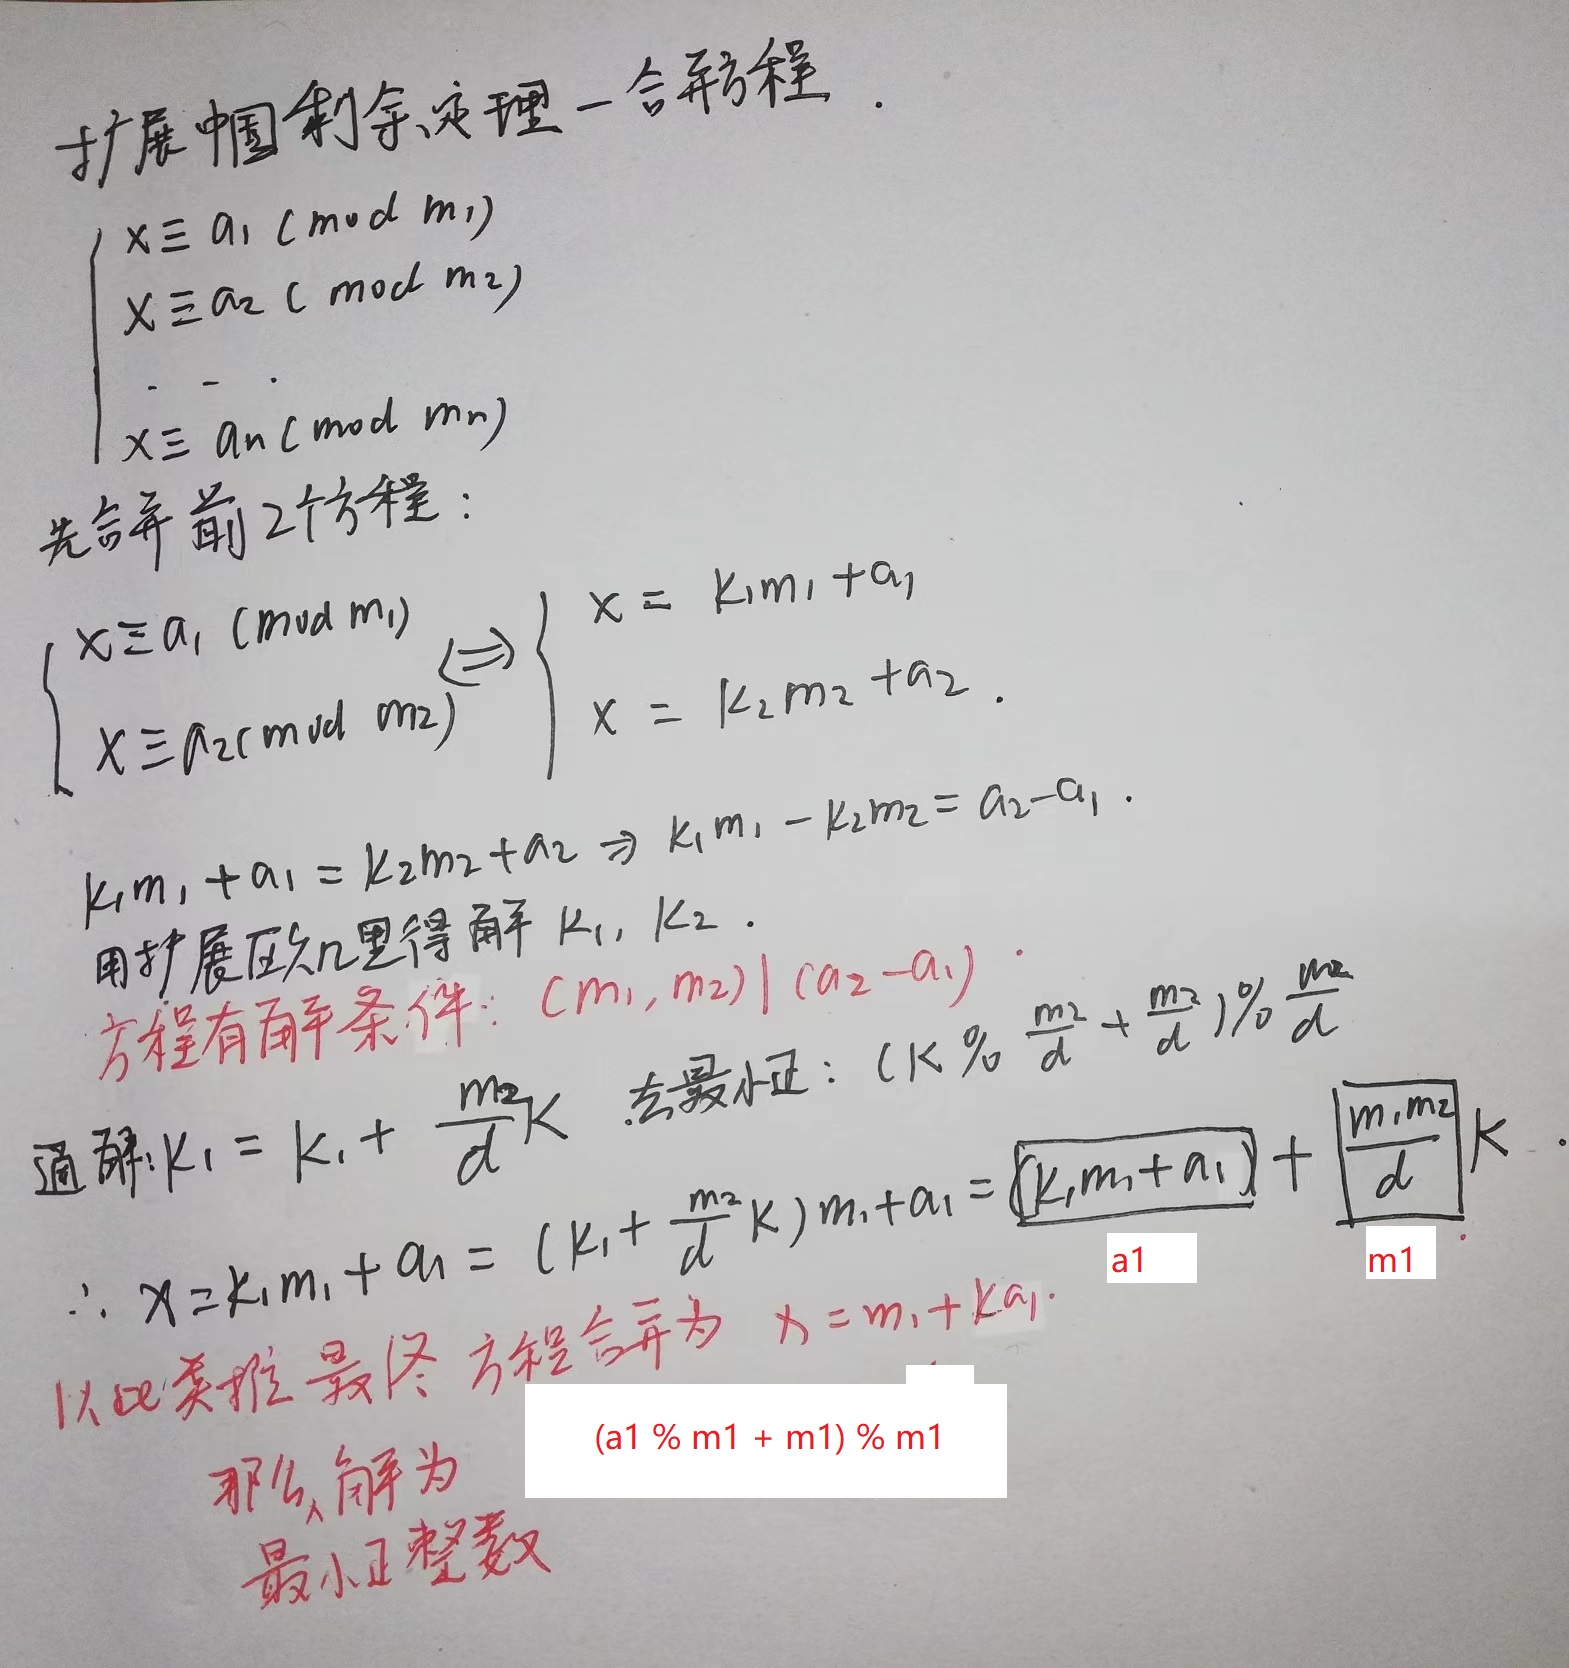 扩展中国剩余定理—合并方程.
x≡a₁(mod m₁)
x≡a₂(mod m₂)
. - .
x≡an(mod mn)
先合并前2个方程:
x≡a₁(mod m₁) <=> x = k₁m₁+a₁
x≡a₂(mod m₂) x = k₂m₂+a₂.
k₁m₁+a₁=k₂m₂+a₂ ⇒ k₁m₁-k₂m₂=a₂-a₁.
用扩展欧几里得解 k₁, k₂.
方程有解条件: (m₁,m₂)|(a₂-a₁).
通解: k₁=k₁+m₂/d K 去最小正: (K%m₂/d+m₂/d)%m₂/d
∴ x=k₁m₁+a₁=(k₁+m₂/d K)m₁+a₁=(k₁m₁+a₁)+m₁m₂/d K.
a1 m1
以此类推最终方程合并为 x=m₁+Ka₁.
(a1 % m1 + m1) % m1
那么解为
最小正整数